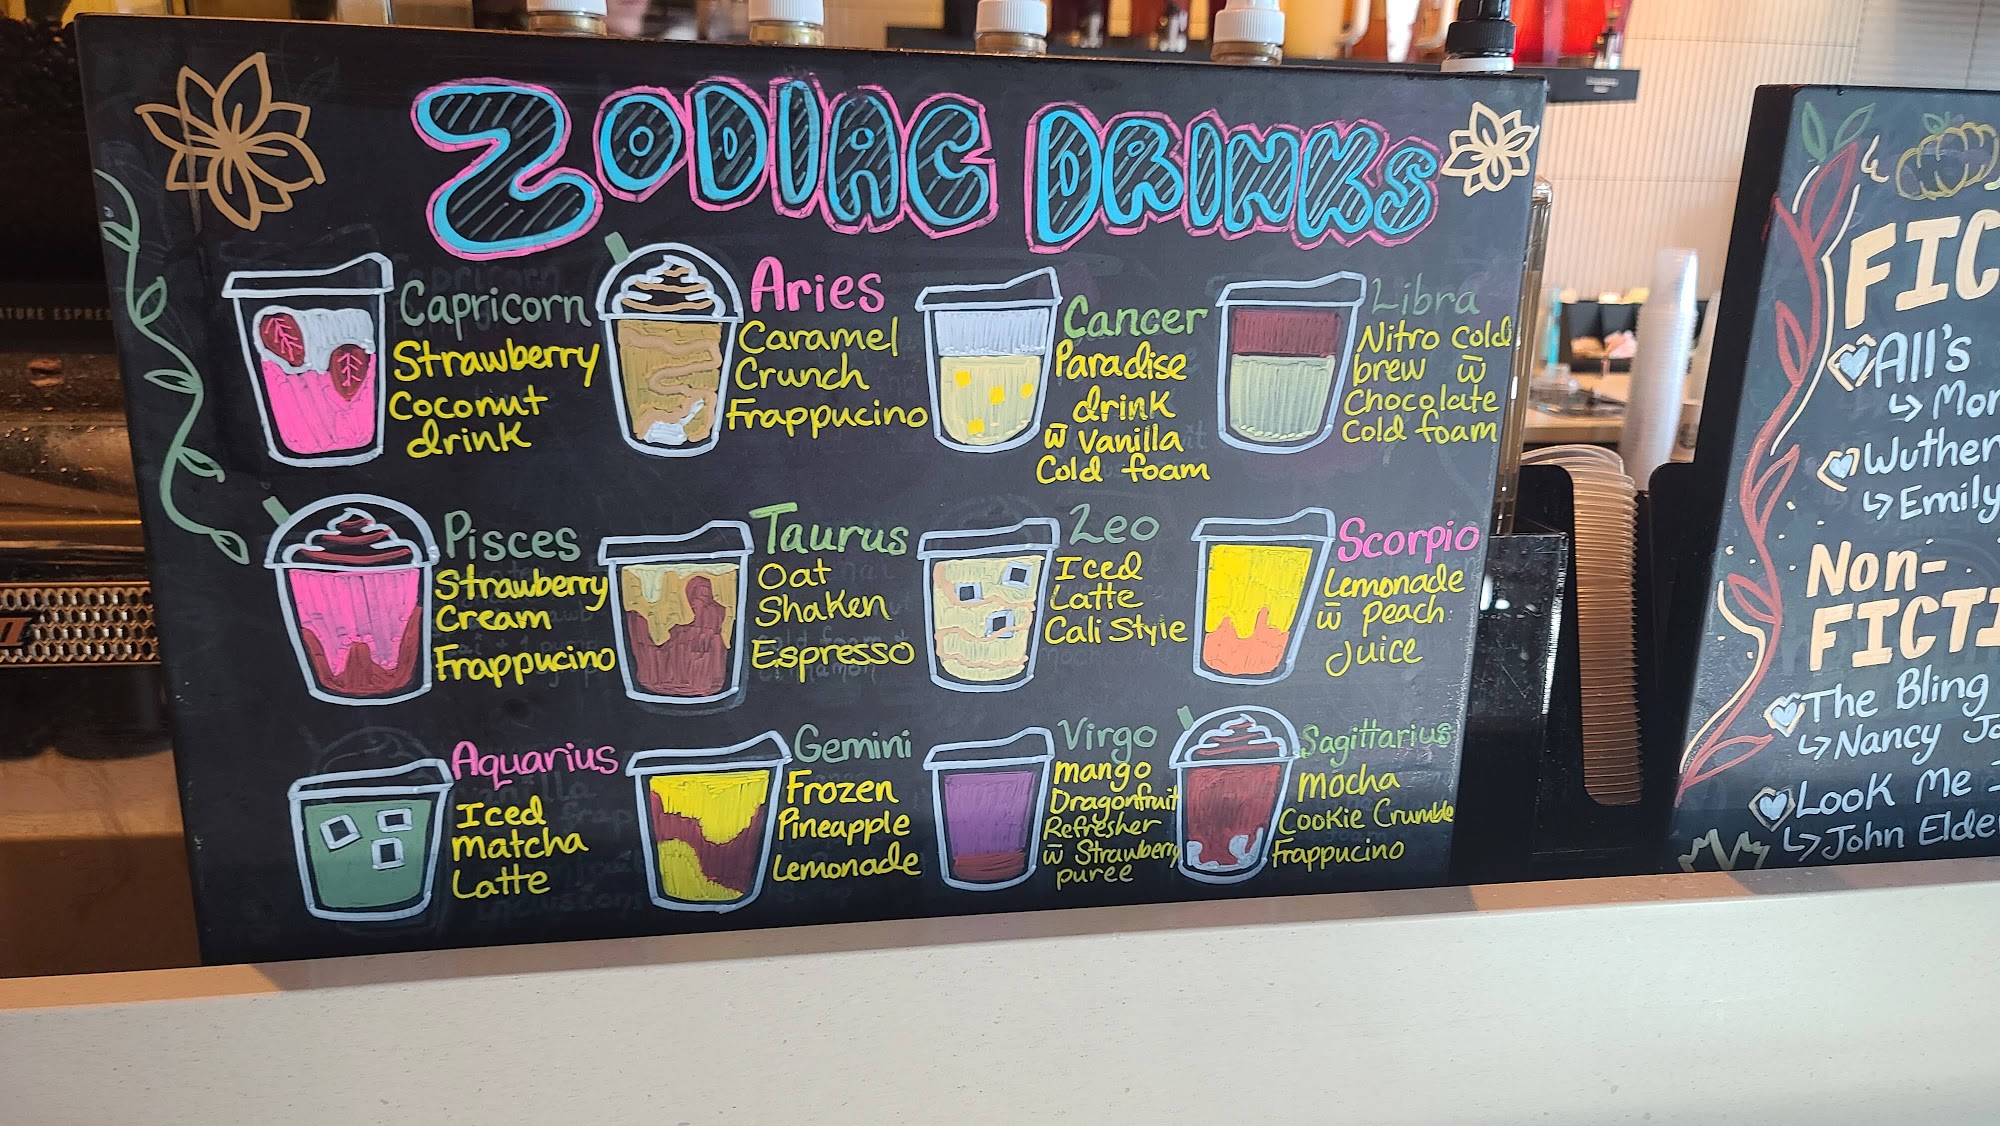 ZODIAC DRINKS
Capricorn
Strawberry
Coconut
drink
Aries
Caramel
Crunch
Frappucino
Cancer
Paradise
drink
w̄ vanilla
Cold foam
Libra
Nitro Cold
brew w̄
Chocolate
Cold foam
Pisces
Strawberry
Cream
Frappucino
Taurus
Oat
Shaken
Espresso
Leo
Iced
Latte
Cali Style
Scorpio
Lemonade
w̄ peach
Juice
Aquarius
Iced
Matcha
Latte
Gemini
Frozen
Pineapple
Lemonade
Virgo
mango
Dragonfruit
Refresher
w̄ Strawberry
puree
Sagittarius
mocha
Cookie Crumble
Frappucino
FIC
All's
↳ Mor
Wuther
↳ Emily
Non-
FICTI
The Bling
↳ Nancy Jo
Look Me I
↳ John Elde